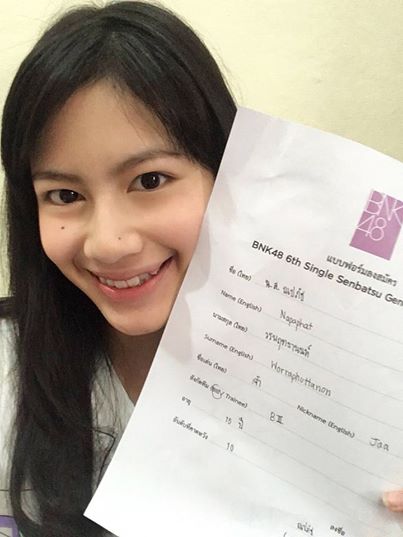 BNK
48
แบบฟอร์มลงสมัคร
BNK48 6th Single Senbatsu Gen
ชื่อ (ไทย) น.ส. ณปภัช
Name (English) Napaphat
นามสกุล (ไทย) วรพฤทธานนท์
Surname (English) Worraphuttanon
ชื่อเล่น (ไทย) จ๋า Nickname (English) Jaa
Trainee) BIII
อายุ 16 ปี
อันดับที่คาดหวัง 10
ณปภัช ลงชื่อ